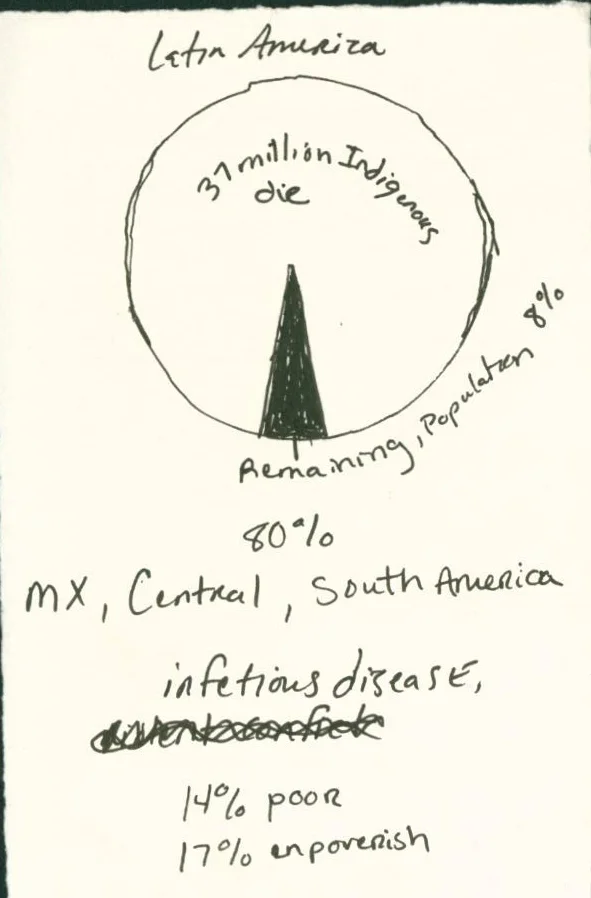 Latin America
37 million Indigenous
die
Remaining, Population 8%
80%
MX, Central, South America
infetious disease,
14% poor
17% enpoverish